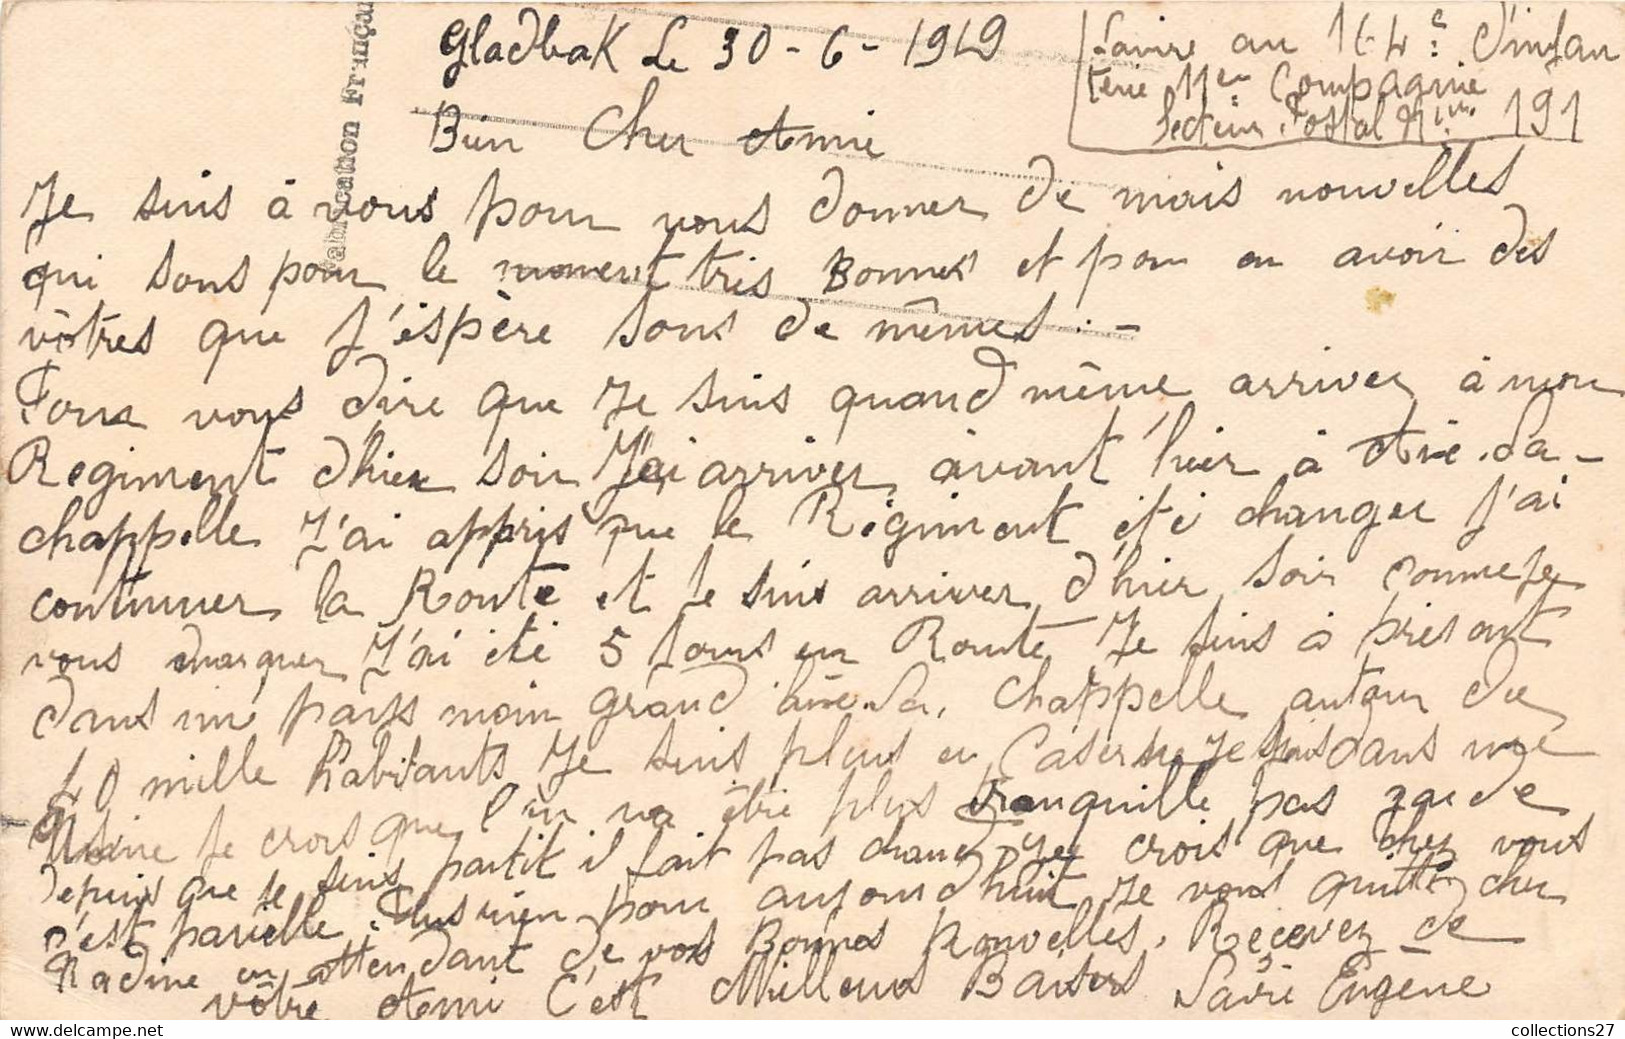 Fabrication Françai
Gladbak Le 30-6-1919
Favire au 164e d'infan
terie 11em Compagnie
Secteur Postal Nim 191
Bien Cher Amie
Je suis à vous pour vous donner de mais nouvelles
qui sons pour le moment tres Bonnes et pour en avoir des
vôtres que J'éspère sons de mêmes :-
Pour vous dire que Je suis quand même arriver à mon
Regiment d'hier soir J'ai arriver avant hier à Aie-la-
chappelle J'ai appris que le Régiment été changer J'ai
continuer la Route et Je suis arriver d'hier soir comme Je
vous marquer J'ai été 5 Jours en Route Je suis à présent
dans un pays moin grand Aie la Chappelle autour de
40 mille habitants Je suis plus en Caserne Je suis dans une
Usine Je crois que l'on va être plus tranquille pas garde
depuis que Je suis partit il fait pas chaud Je crois que chez vous
c'est parielle. Plus rien pour aujourd'huit Je vous quitte cher
Nadine en attendant de vos Bonnes Nouvelles. Recevez de
vôtre Ami C'est Milleurs Baisers Favire Eugène
collections27